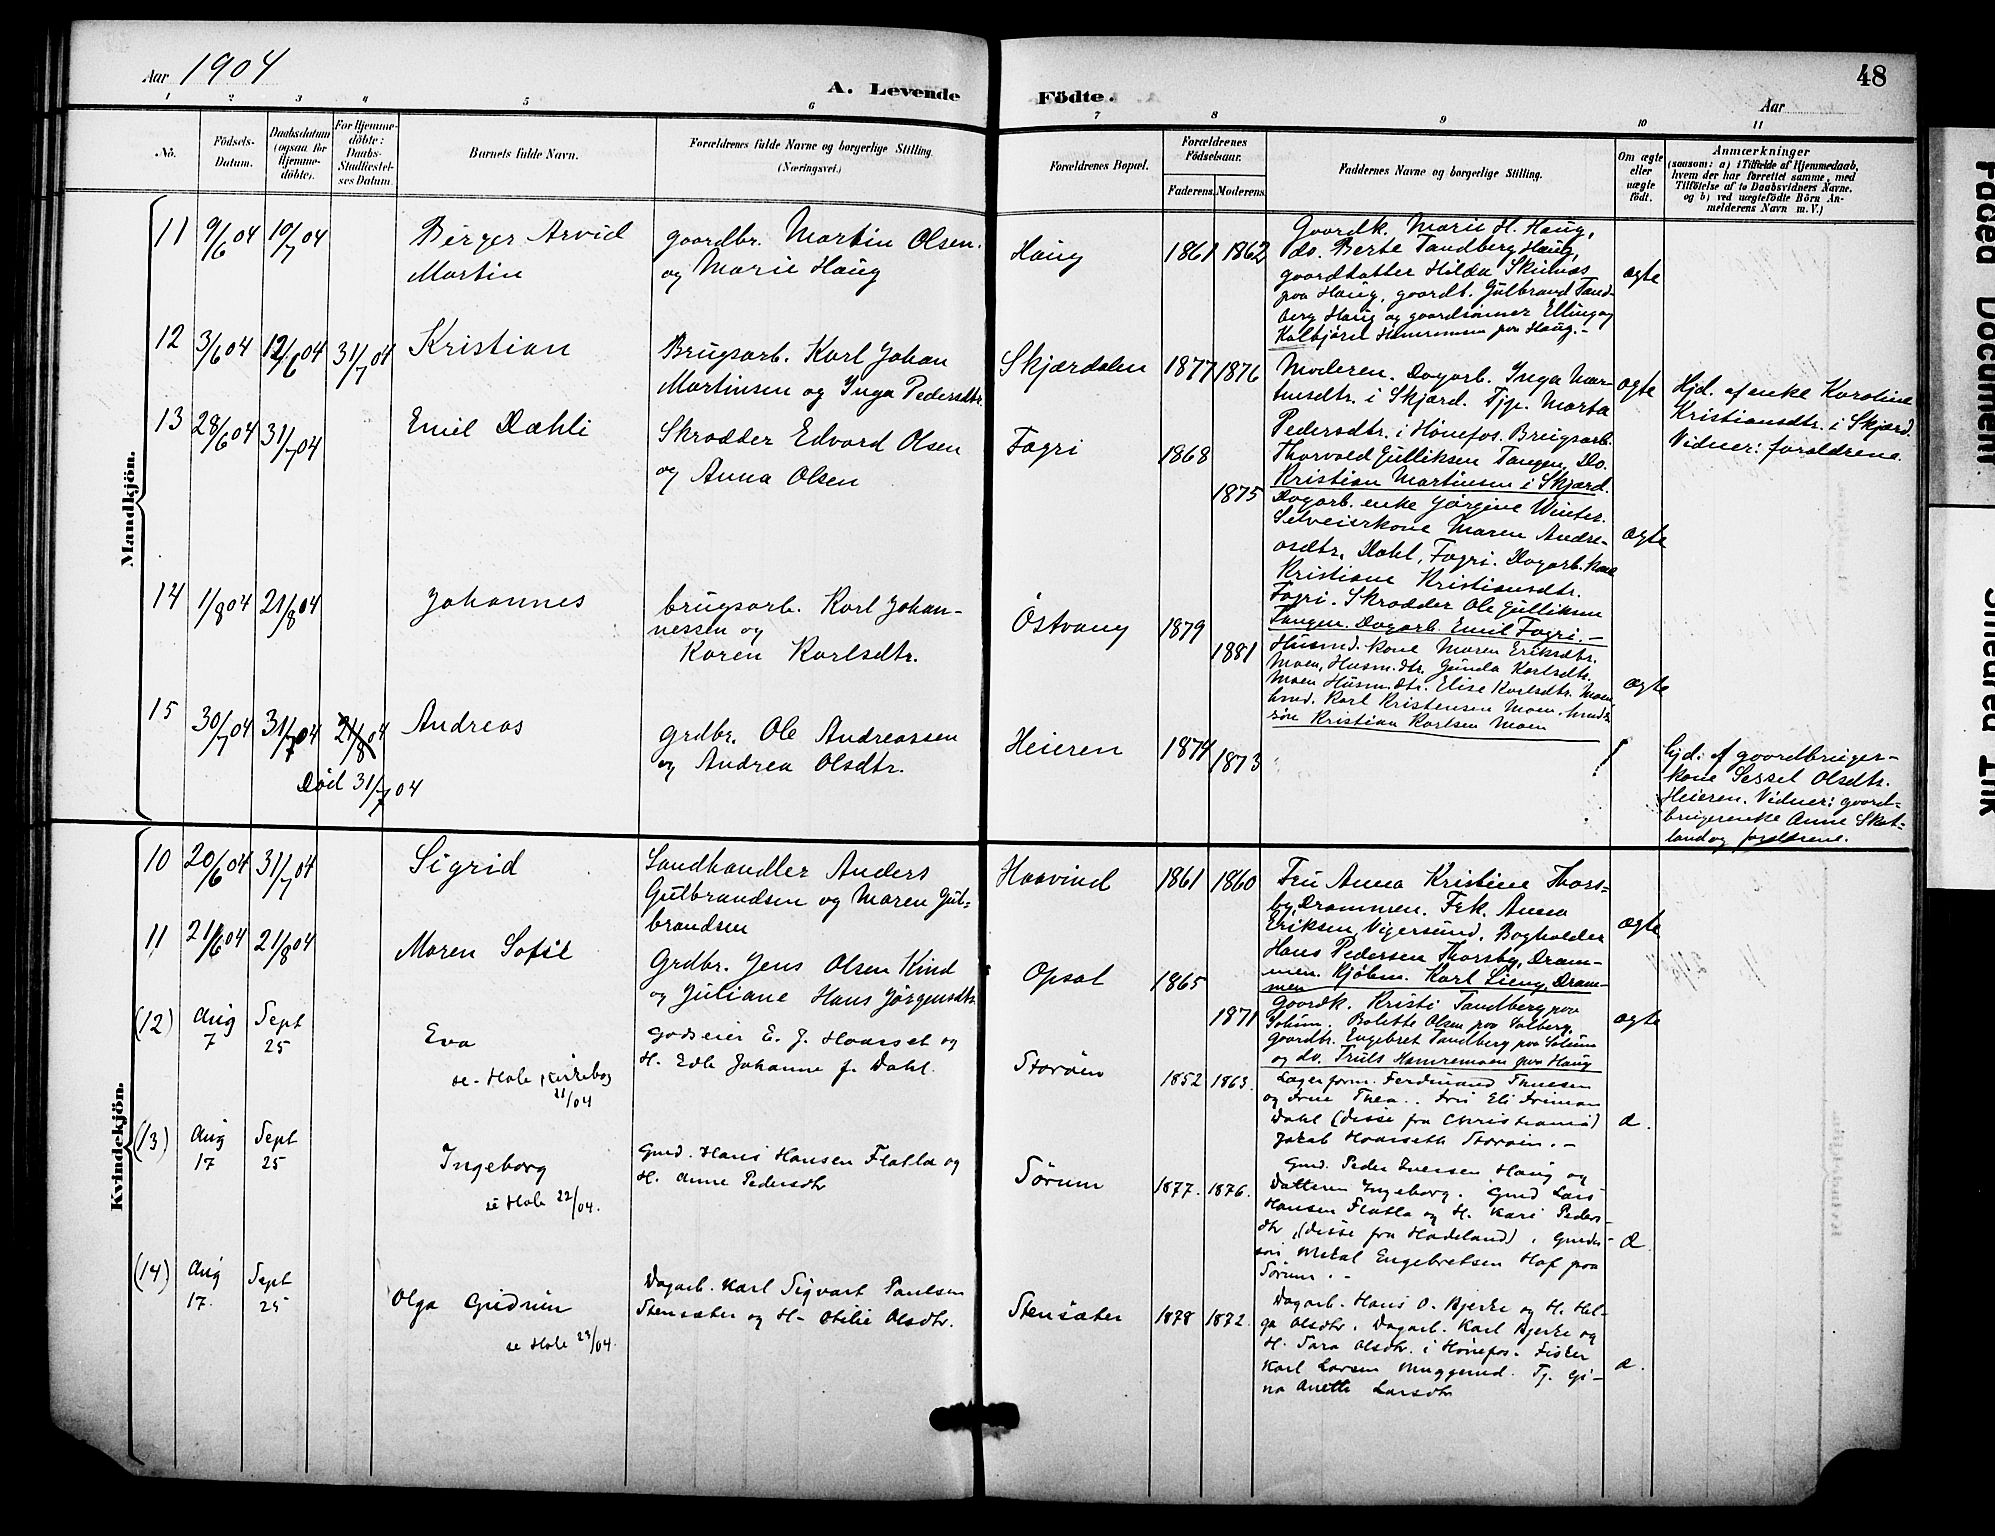 Aar 1904
A. Levende Födte.
48
Aar
1 2 3 4 5 6 7 8 9 10 11
No.
Födsels-
Datum.
Daabsdatum
(ogsaa for
Hjemme-
döbte).
For Hjemme-
döbte:
Daabs-
Stadfæstel-
ses Datum.
Barnets fulde Navn.
Forældrenes fulde Navne og borgerlige Stilling.
(Næringsvei.)
Forældrenes Bopæl.
Forældrenes
Födselsaar.
Faderens. Moderens.
Faddernes Navne og borgerlige Stilling.
Om ægte
eller
uægte
födt.
Anmærkninger
(saasom: a) i Tilfælde af Hjemmedaab,
hvem der har forrettet samme, med
Tilföielse af to Daabsvidners Navne.
og b) ved uægtefödte Börn An-
melderens Navn m. V.)
Mandkjön.
11 9/6 04 10/7 04
Birger Arvid
Martin
gaardbr. Martin Olsen
og Marie Haug
Haug
1861 1862
Gaardk. Marie H. Haug,
do. Berte Tandberg Haug,
gaarddatter Hilda
paa Haug, gaardb. Gulbrand Tand-
berg Haug og gaardsönner Elling og
Kolbjörn paa Haug.-
ægte
12 3/6 04 12/6 04 31/7 04
Kristian
Brugsarb. Karl Johan
Martinsen og Inga Pedersdtr.
Skjærdalen
1877 1876
Moderen. Dagarb. Inga Mar-
tinsdtr. i Skjærd. Tjp. Marta
Pedersdtr. i Hönefos. Brugsarb.
Thorvald Gulliksen Tangen, Do.
Kristian Martinsen i Skjærd.
ægte
Hjd. af enke Karoline
Kristiansdtr. i Skjærd.
Vidner: forældrene.
13 28/6 04 31/7 04
Emil Dæhli
Skrædder Edvard Olsen
og Anna Olsen
Fagri
1868
1875
Dagarb. enke Jörgine Winter.
Selveierkone Maren Andre-
asdtr. Dahl, Fagri. Dagarb. kone
Kristiane Kristiansdtr.
Fagri. Skrædder Ole Gulliksen
Tangen. Dagarb. Emil Fagri.-
ægte
14 1/8 04 21/8 04
Johannes
brugsarb. Karl Johan-
nessen og
Karen Karlsdtr.
Östvang
1879
1881
Husmd. kone Maren Eriksdtr.
Moen, Husm.dtr. Gunda Karlsdtr.
Moen Husm.dtr. Elise Karlsdtr. Moen
husd. Karl Kristensen Moen, husds
sön Kristian Karlsen Moen
ægte
15 30/7 04 31/7 04 21/8 04
Död 31/7 04
Andreas
grdbr. Ole Andreassen
og Andrea Olsdtr.
Heieren
1874 1873
Hjd: af gaardbruger-
kone Sessel Olsdtr.
Heieren. Vidner: gaard-
brugerenke Anne Skat-
land og forældrene.
Kvindekjön.
10 20/6 04 31/7 04
Sigrid
Landhandler Anders
Gulbrandsen og Maren Gul-
brandsen
Haavind
1861 1860
Fru Anna Kristine Thors-
by, Drammen. Frk. Anna
Eriksen, Vigersund. Bogholder
Hans Pedersen Thorsby, Dram-
men. Kjöbm. Karl Lieng, Dram-
men
ægte
11 21/6 04 21/8 04
Maren Sofie
Grdbr. Jens Olsen Kind
og Juliane Hans Jörgensdtr.
Opsal
1865
1871
Gaardk. Kristi Tandberg paa
Solum. Bolette Olsen paa Solberg.
Gaardbr. Engebret Tandberg paa Solum
og do. Truls Hamremoen paa Haug
ægte
(12) Aug
7
Sept
25
Eva
se Hole Kirkebog
21/04
Godseier E. J. Haarset og
H. Edle Johanne f. Dahl.
Storöen
1852 1863.
Lagerform. Ferdinand Thuesen
og Frue Thea. Fru Eli Friman
Dahl (disse fra Christiania)
Jakob Haarseth Storöen.-
æ.
(13) Aug
17
Sept
25
Ingeborg
se Hole 22/04.
Gmd. Hans Hansen Flatla og
H. Anne Pedersdtr
Sörum
1877. 1876.
Gmd. Peder Iversen Haug og
Datteren Ingeborg. Gmd Lars
Hansen Flatla og H. Kari Peders-
dtr, (disse fra Hadeland), Gmds-
sön Mekal Engebretsen Hof paa
Sörum.-
æ.
(14) Aug
17.
Sept
25
Olga Gudrun
se Hole 23/04.
Dagarb. Karl Sigvart Paulsen
Stensæter og H. Otilie Olsdtr.
Stensæter
1878 1872.
Dagarb. Hans O. Bjerke og H. Hel-
ga Olsdtr. Dagarb. Karl Bjerke og
H. Sara Olsdtr. i Hönefos. Fisker
Karl Larsen Muggerud. Tj. Gi-
na Anette Larsdtr
æ.
Faded Document.
Smeared Ink